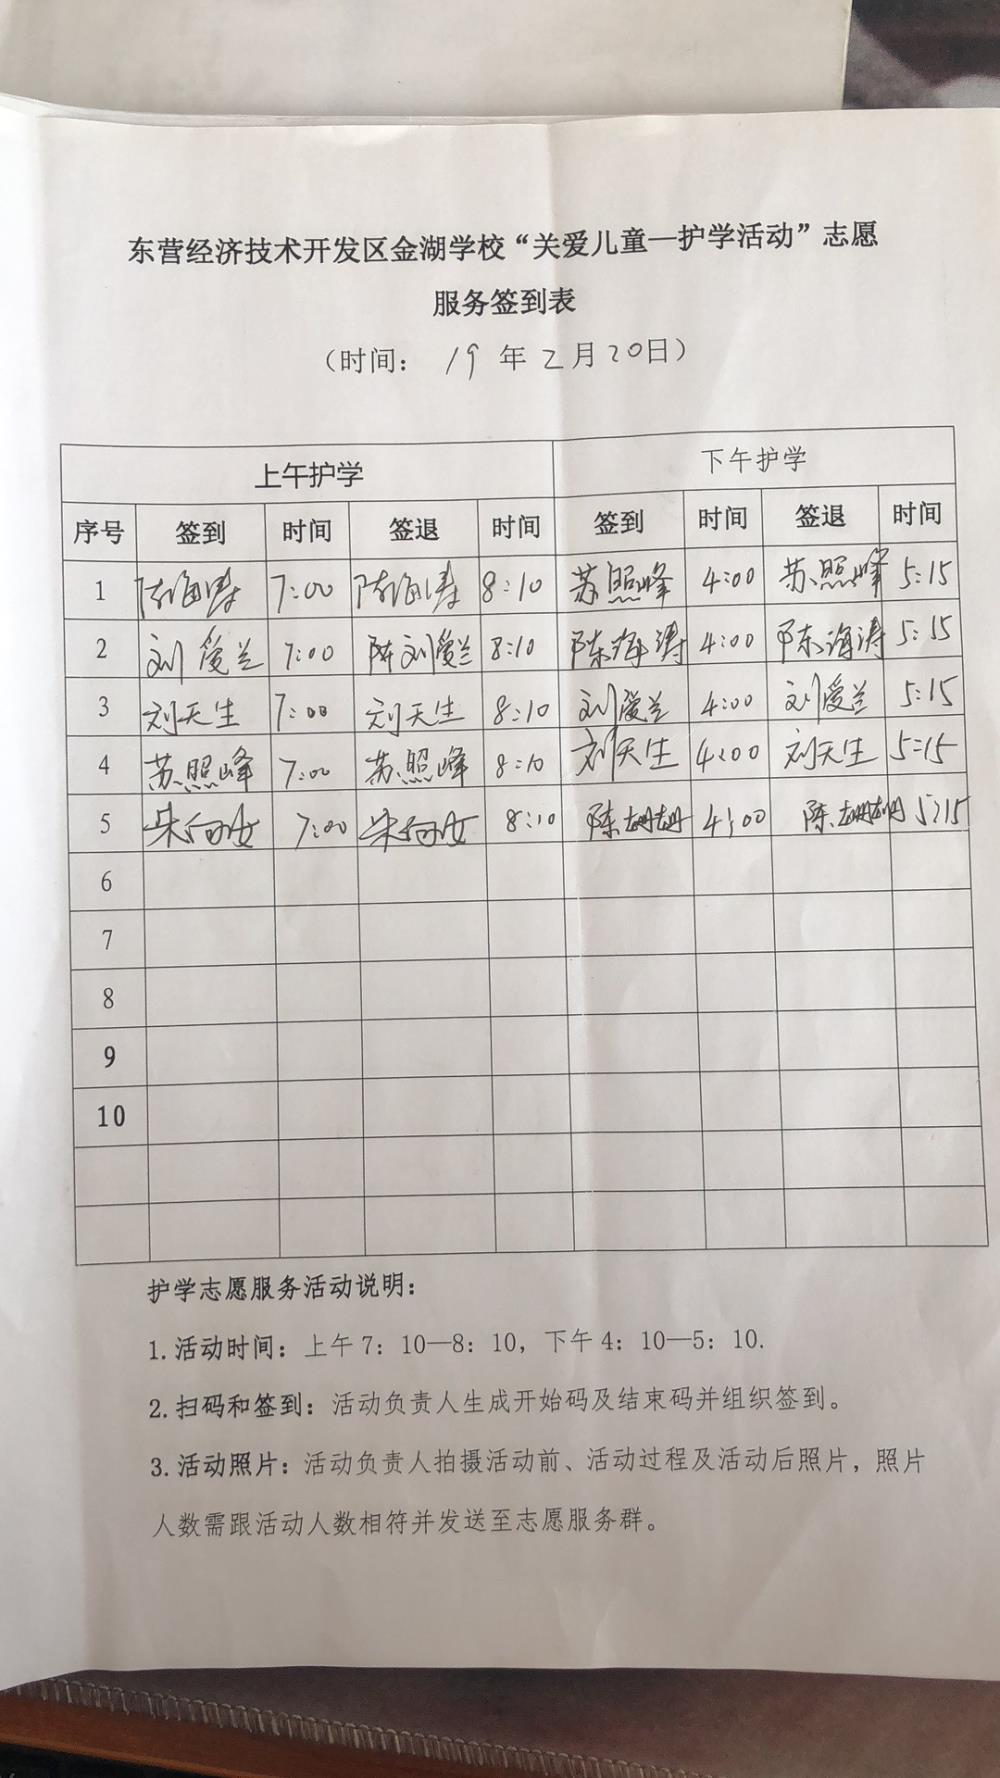 东营经济技术开发区金湖学校“关爱儿童—护学活动”志愿
服务签到表
（时间： 19 年 2 月 20日）
上午护学 下午护学
序号 签到 时间 签退 时间 签到 时间 签退 时间
1 陈海涛 7:00 陈海涛 8:10 苏照峰 4:00 苏照峰 5:15
2 刘爱兰 7:00 刘爱兰 8:10 陈海涛 4:00 陈海涛 5:15
3 刘天生 7:00 刘天生 8:10 刘爱兰 4:00 刘爱兰 5:15
4 苏照峰 7:00 苏照峰 8:10 刘天生 4:00 刘天生 5:15
5 7:00 8:10 陈姗姗 4:00 陈姗姗 5:15
6
7
8
9
10
护学志愿服务活动说明：
1.活动时间：上午 7：10—8：10，下午 4：10—5：10.
2.扫码和签到：活动负责人生成开始码及结束码并组织签到。
3.活动照片：活动负责人拍摄活动前、活动过程及活动后照片，照片
人数需跟活动人数相符并发送至志愿服务群。